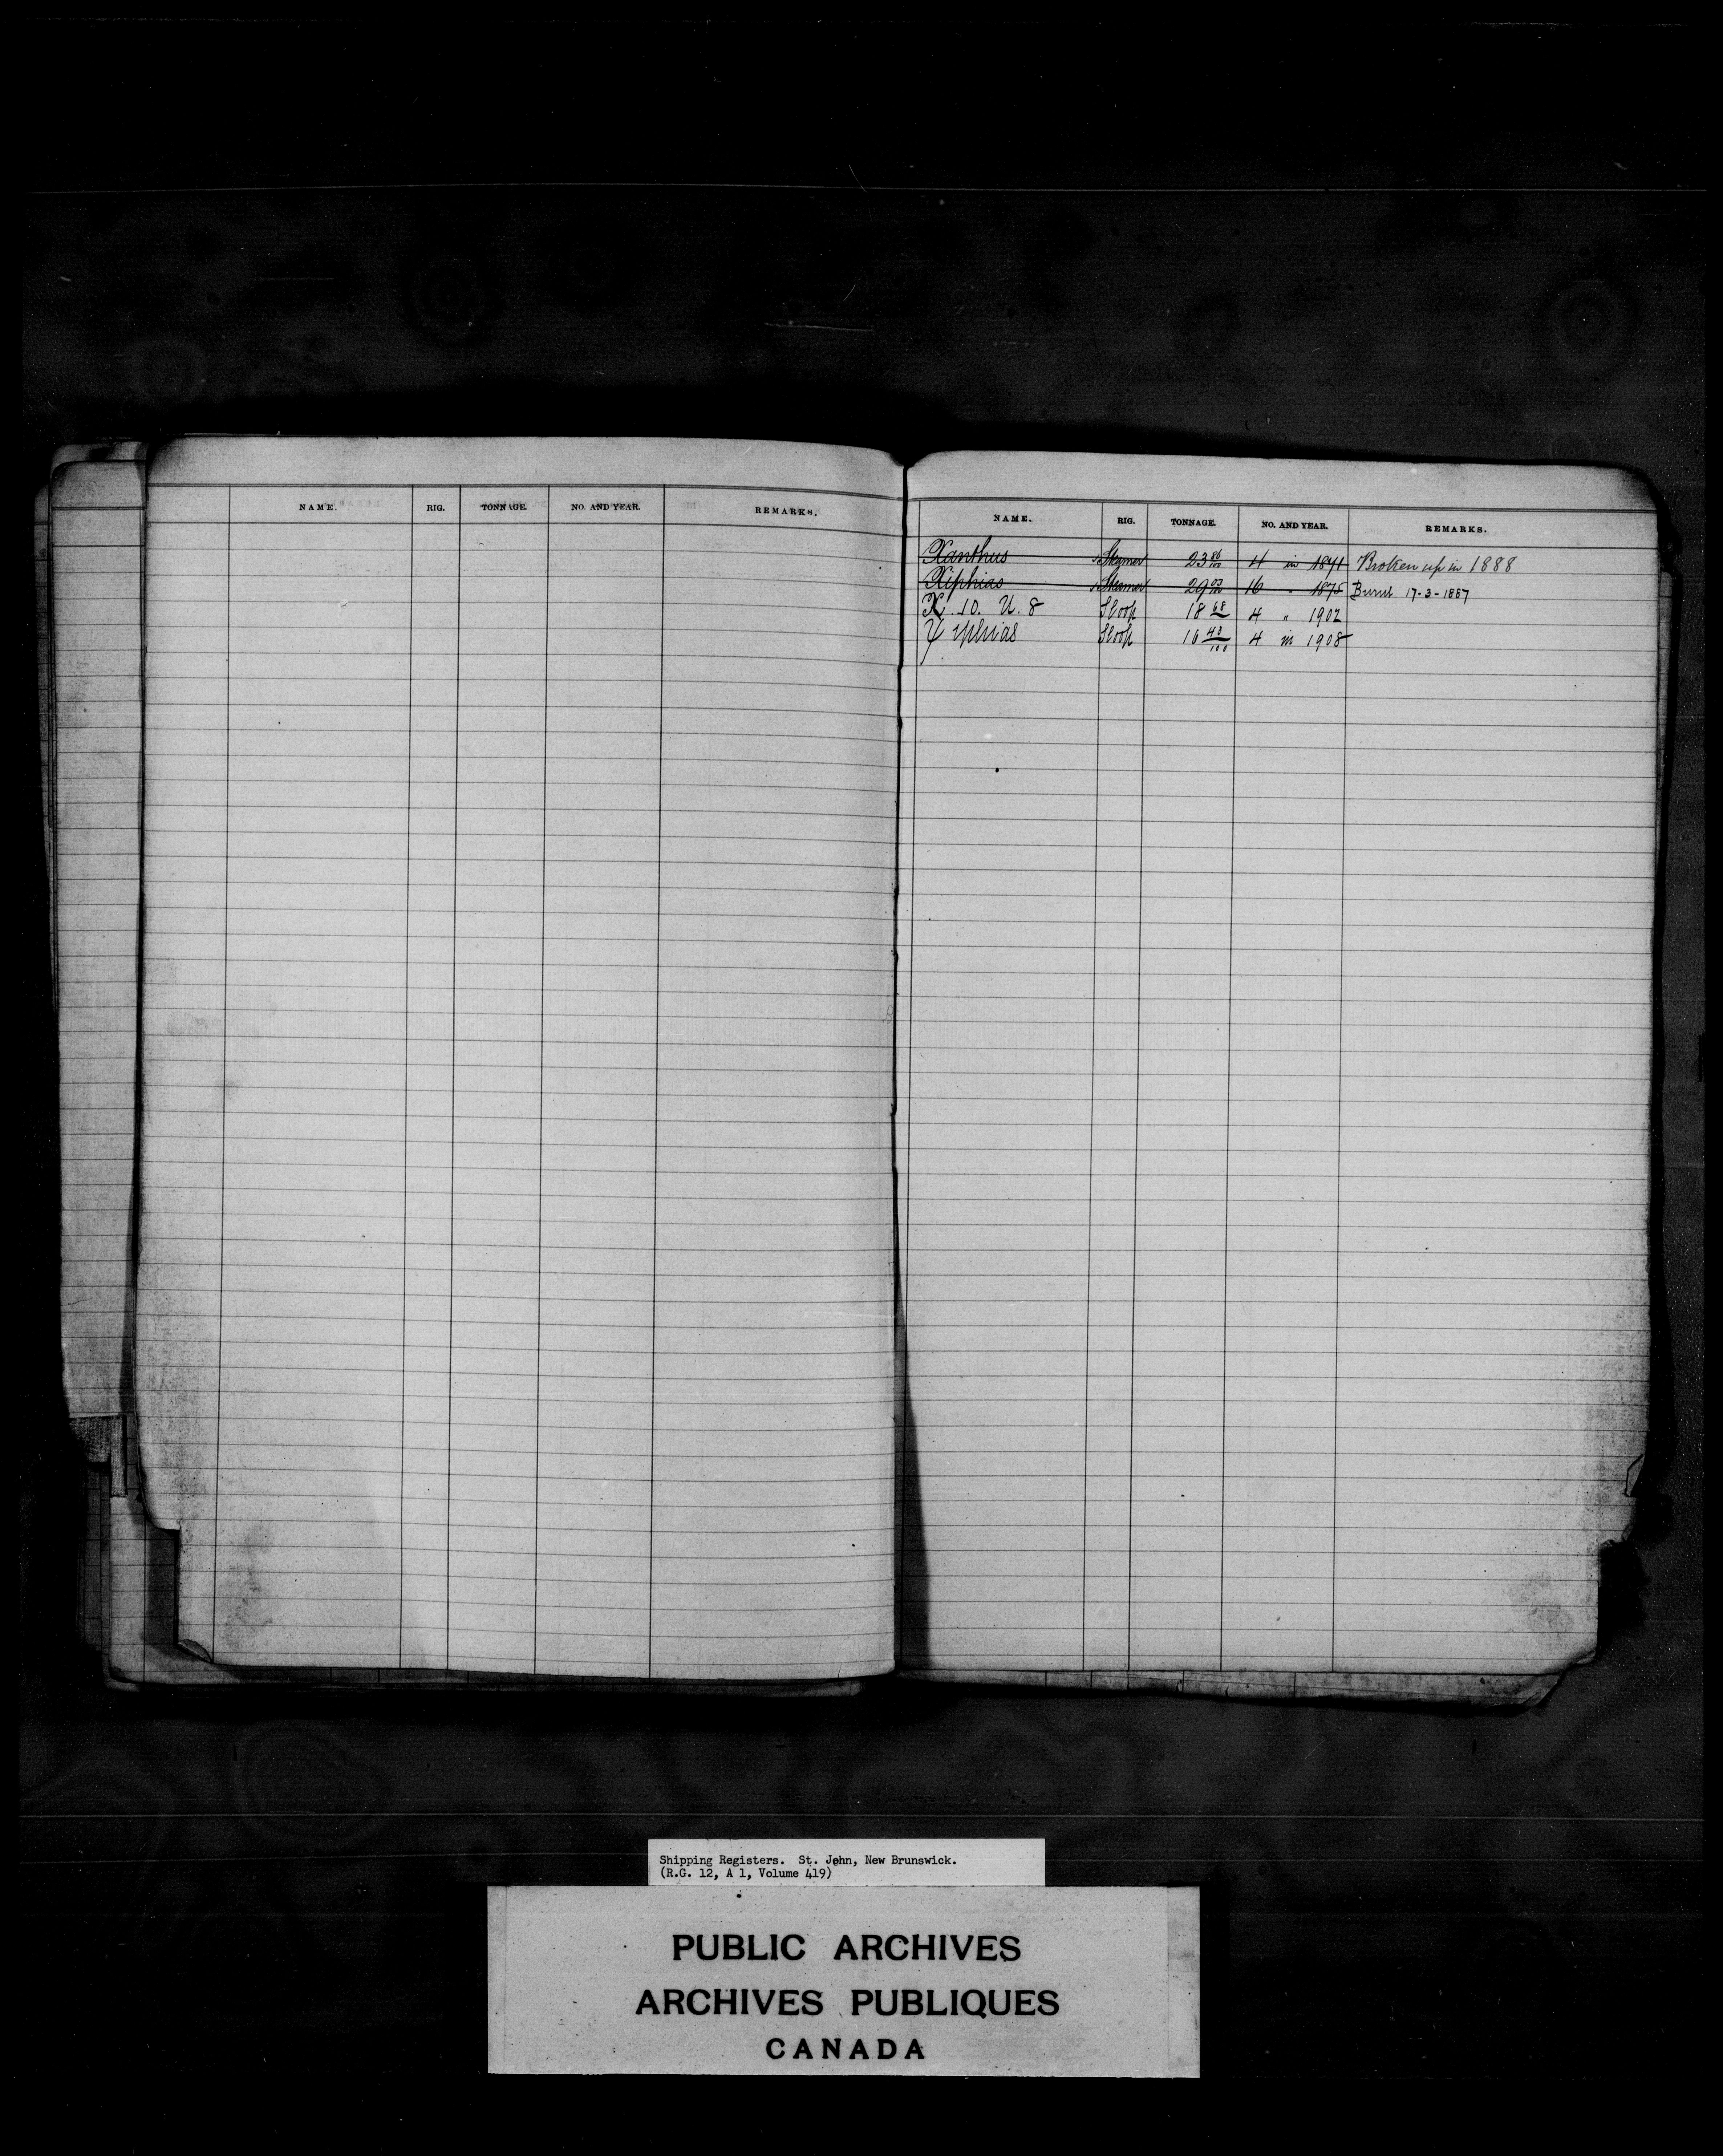 NAME. RIG. TONNAGE. NO. AND YEAR. REMARKS.
NAME. RIG. TONNAGE. NO. AND YEAR. REMARKS.
Xanthus Steamer 23 86/100 4 in 1871 Broken up in 1888
Xiphias Steamer 29 03/100 16 " 1875 Burnt 17-3-1887
X. 10. U. 8 Sloop 18 68 4 " 1902
Sloop 16 43/100 4 in 1908
Shipping Registers. St. John, New Brunswick.
(R.G. 12, A 1, Volume 419)
PUBLIC ARCHIVES
ARCHIVES PUBLIQUES
CANADA